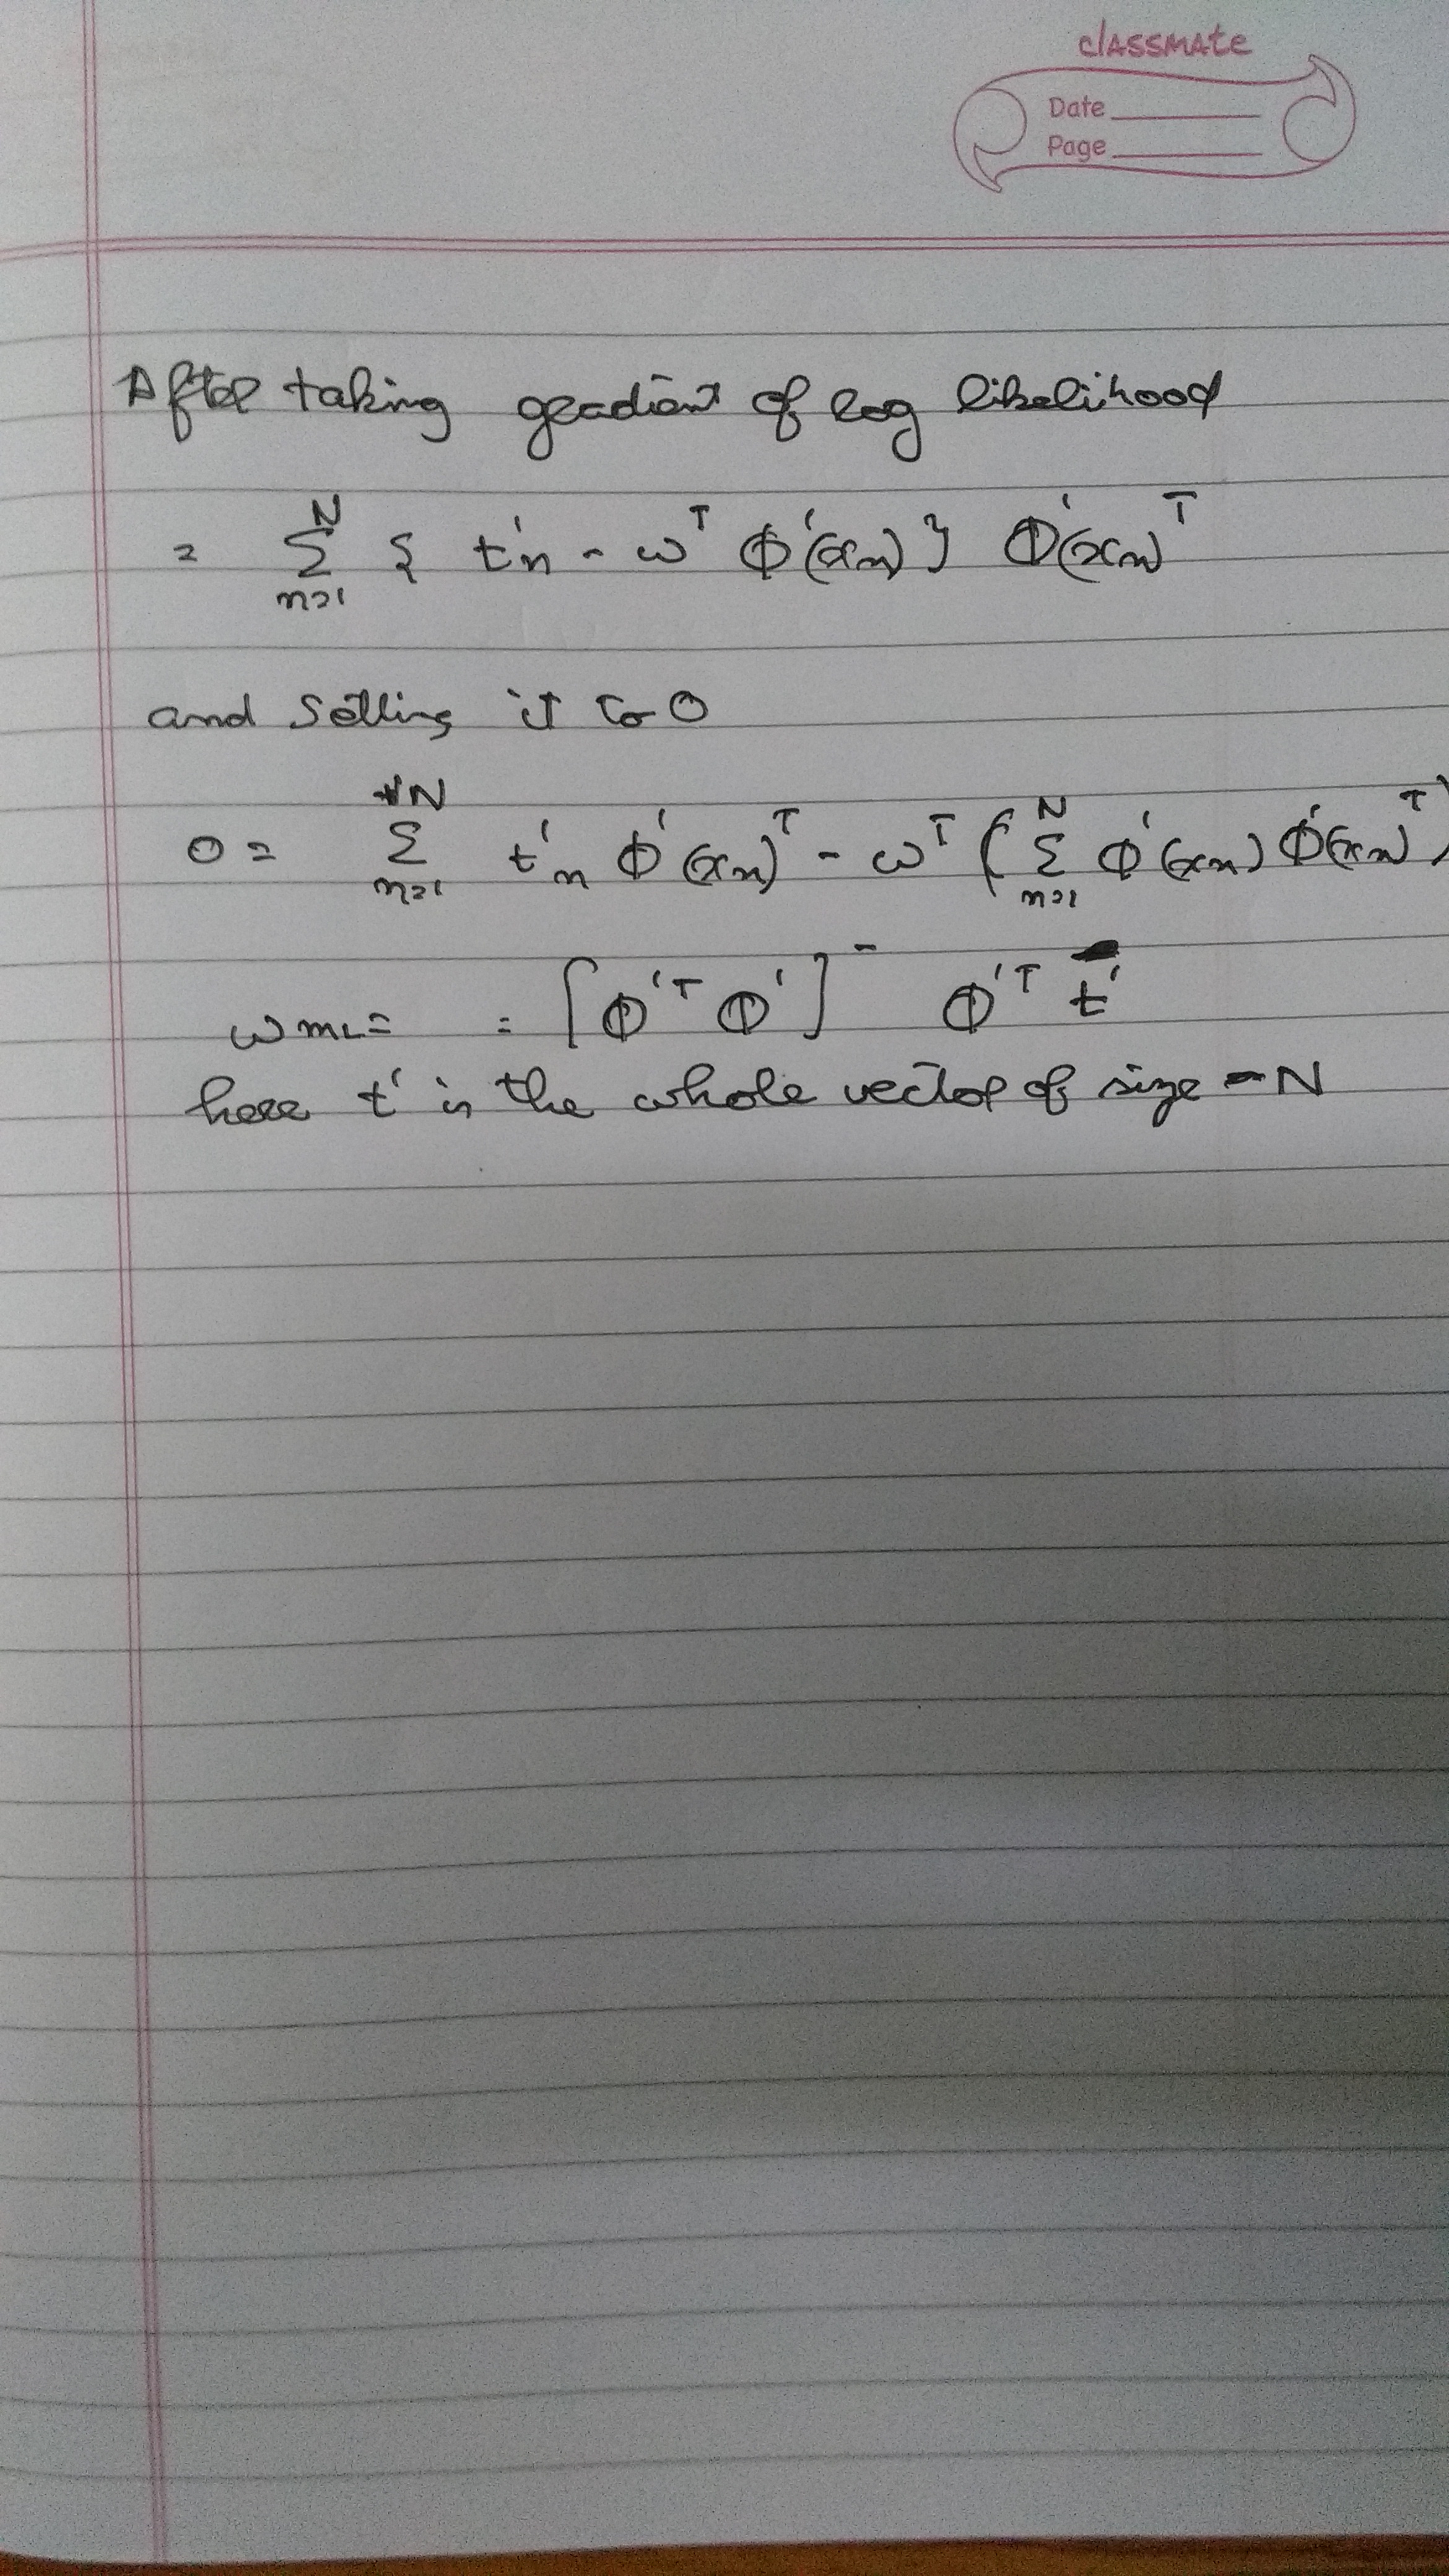 classmate
Date
Page
After taking gradient of log likelihood
= Σ_{n=1}^{N} { t'n - w^T Φ'(xn) } Φ'(xn)^T
and setting it to 0
0 = Σ_{n=1}^{N} t'n Φ'(xn)^T - w^T ( Σ_{n=1}^{N} Φ'(xn) Φ'(xn)^T )
w ML = = [ Φ'^T Φ' ]^- Φ'^T t'
here t' is the whole vector of size - N